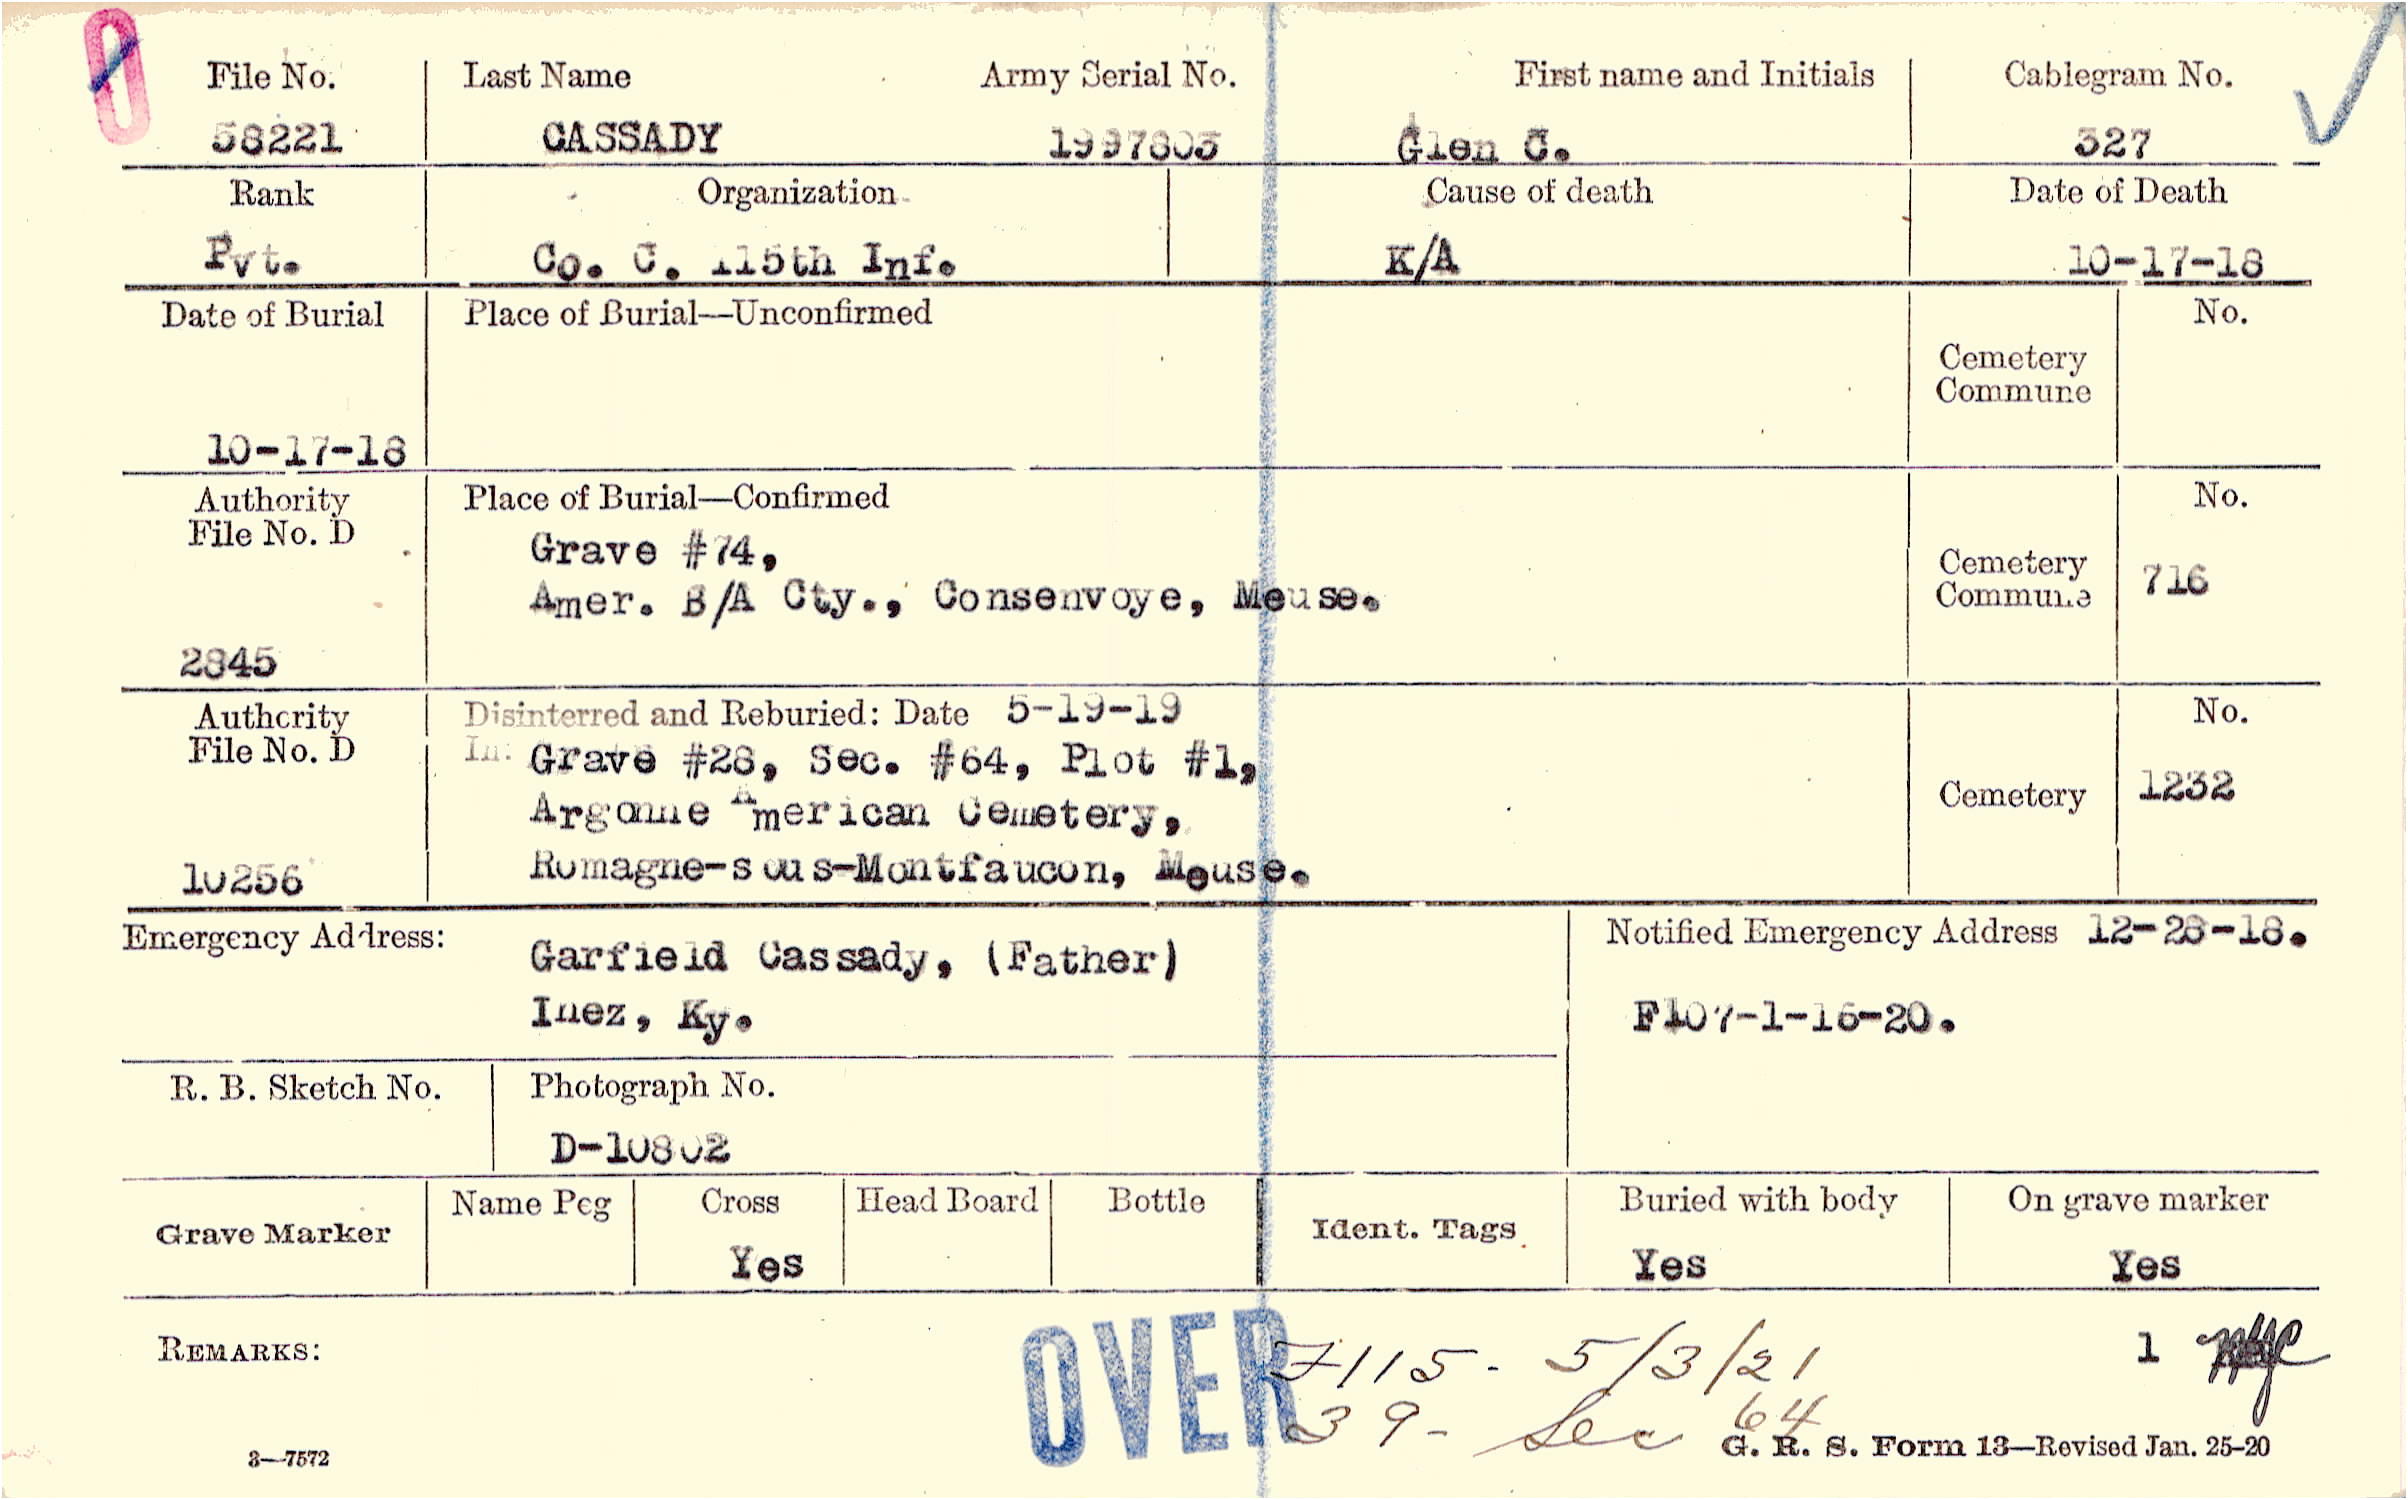 File No. Last Name Army Serial No. First name and Initials Cablegram No.
58221 CASSADY 1997803 Glen C. 327
Rank Organization Cause of death Date of Death
Pvt. Co. C. 115th Inf. K/A 10-17-18
Date of Burial Place of Burial—Unconfirmed No.
Cemetery
Commune
10-17-18
Authority Place of Burial—Confirmed No.
File No. D
Grave #74,
Cemetery
Commune 716
Amer. B/A Cty., Consenvoye, Meuse.
2845
Authority Disinterred and Reburied: Date 5-19-19 No.
File No. D In: Grave #28, Sec. #64, Plot #1,
Cemetery 1232
Argonne American Cemetery,
10256 Romagne-sous-Montfaucon, Meuse.
Emergency Address: Notified Emergency Address 12-28-18.
Garfield Cassady, (Father)
Inez, Ky. F107-1-16-20.
R. B. Sketch No. Photograph No.
D-10802
Grave Marker Name Peg Cross Head Board Bottle Ident. Tags Buried with body On grave marker
Yes Yes Yes
REMARKS: OVER 7115 - 5/3/21 1
39 - Sec 64
3—7572 G. R. S. Form 13—Revised Jan. 25-20